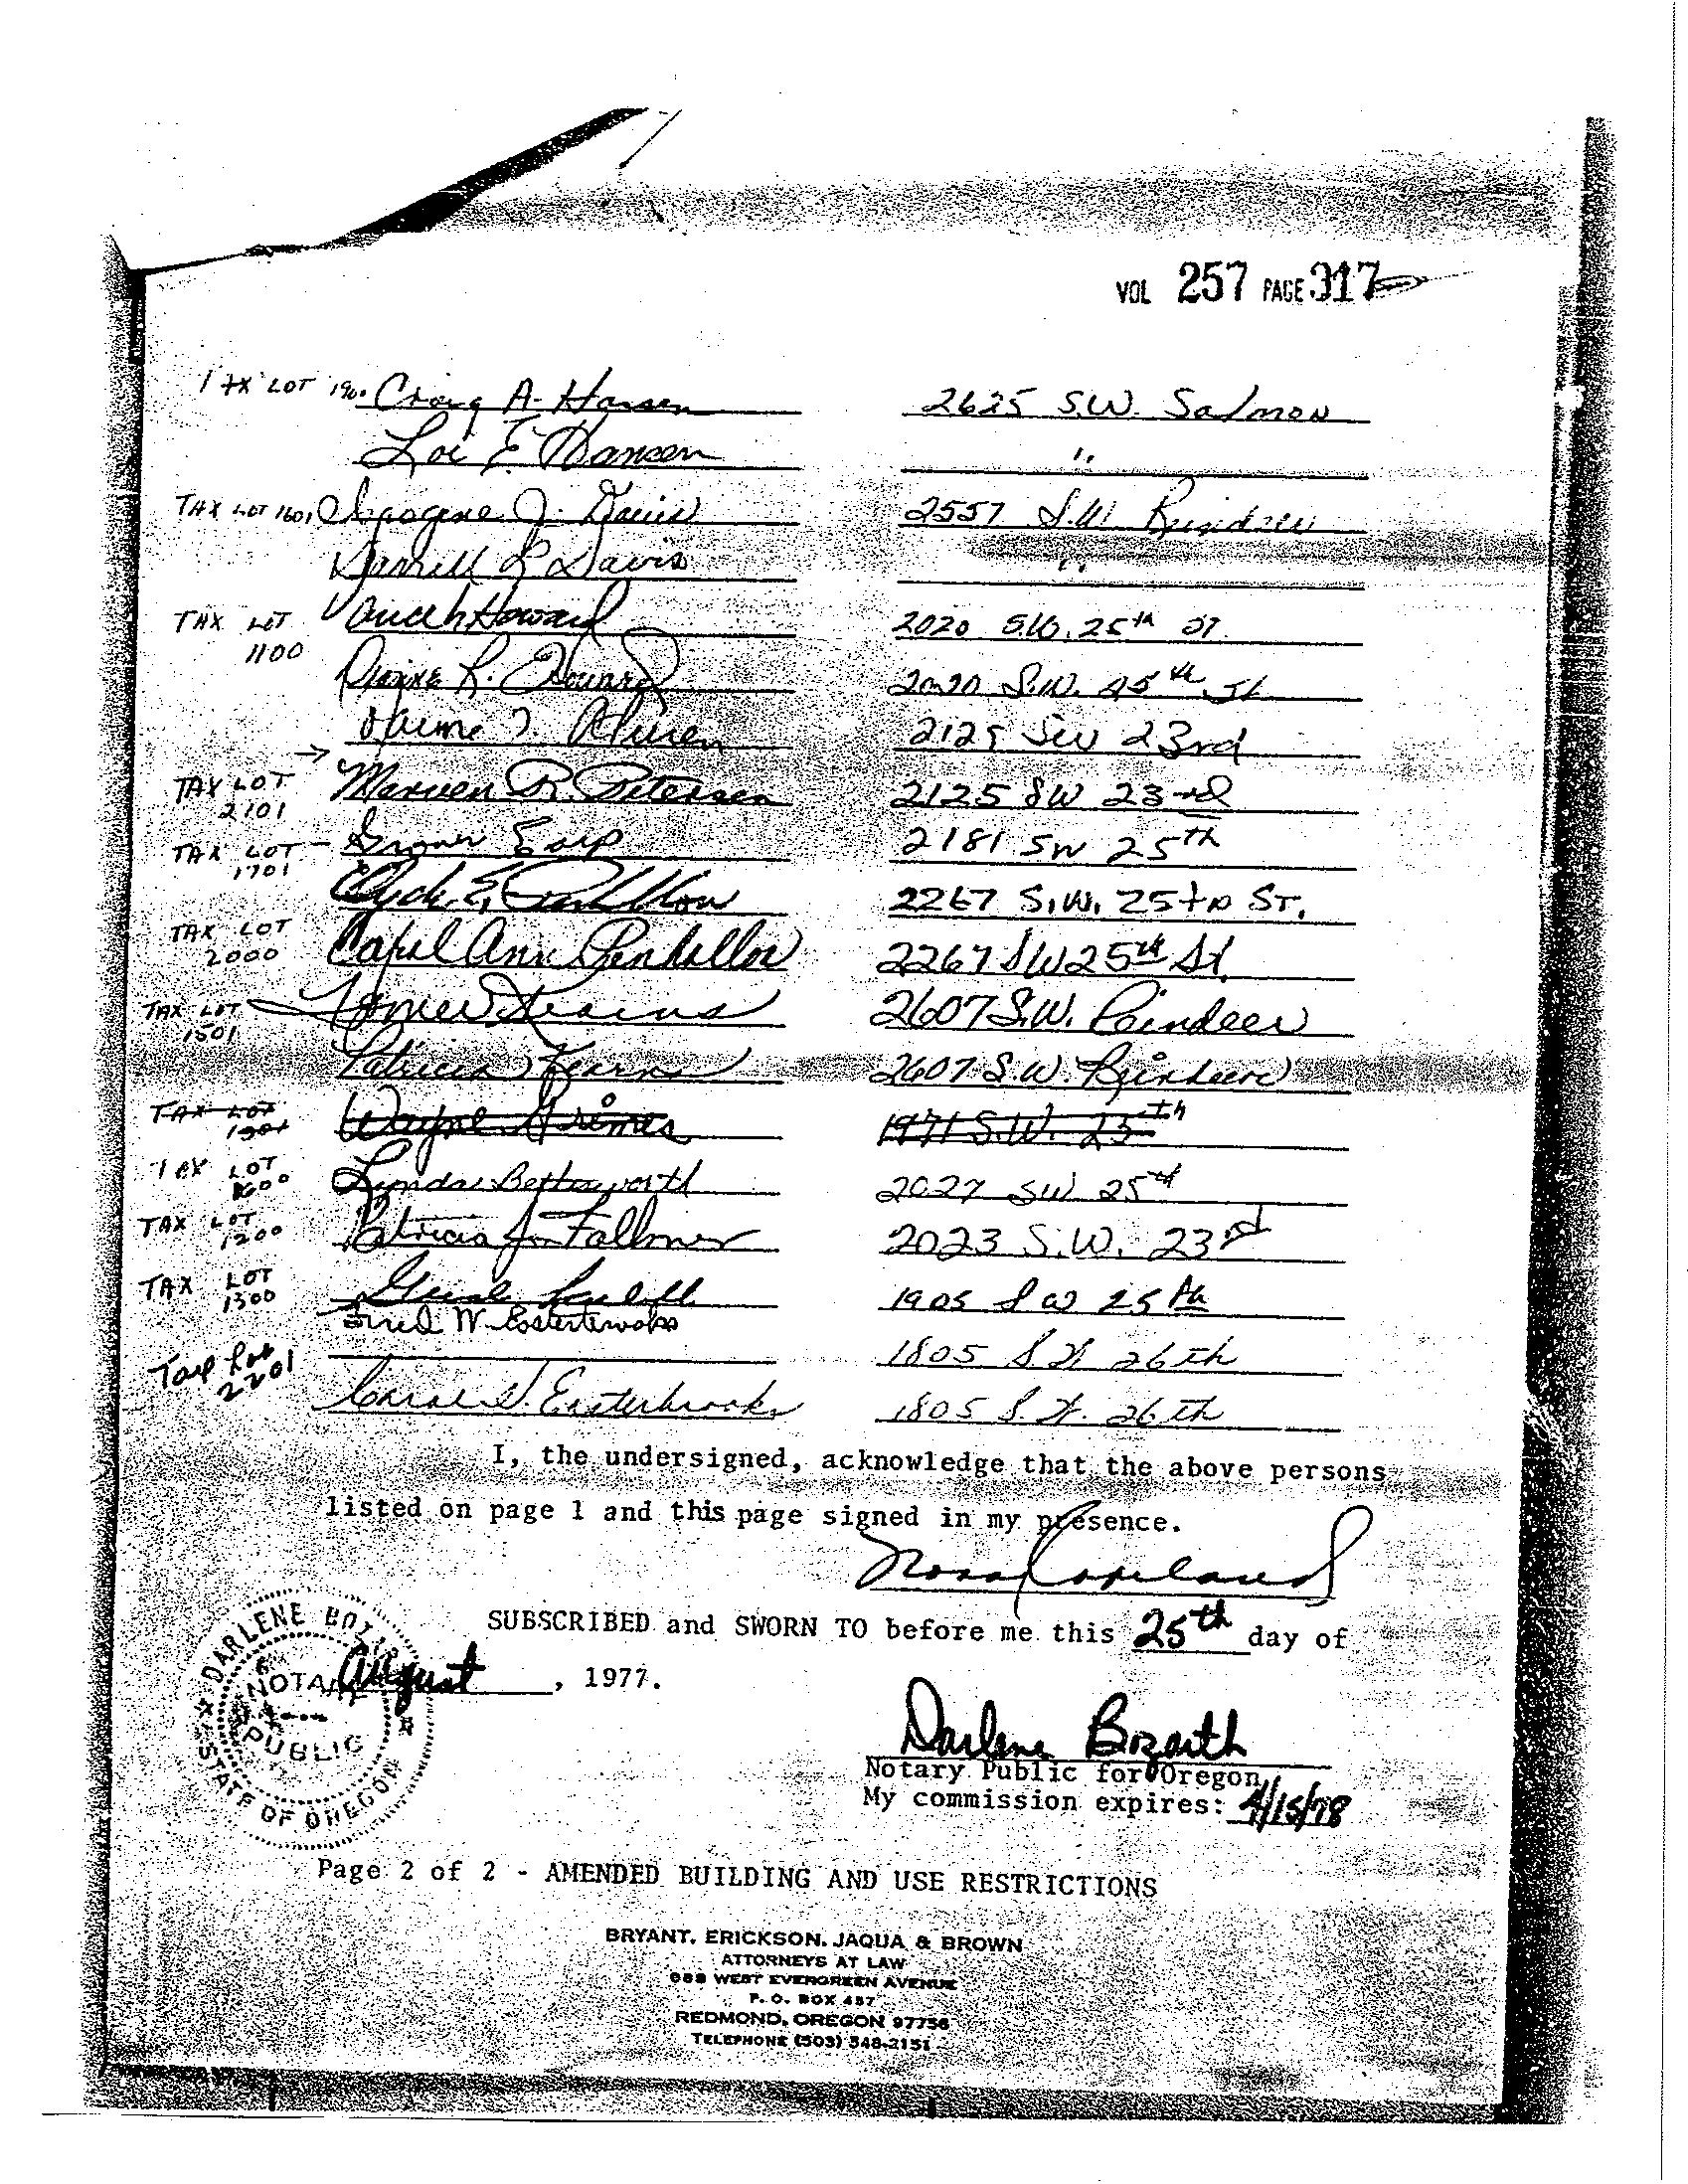 VOL 257 PAGE 317
TAX LOT Craig A. Hansen 2625 S.W. Salmon
E. Hansen "
TAX LOT 1601 J. Davis 2557 S.W.
Darrell Davis "
TAX LOT Howard 2020 S.W. 25th ST
1100
R. Howard 2020 S.W. 25th St
2125 SW 23rd
TAX LOT Marven R. Petersen 2125 SW 23rd
2101
TAX LOT Earp 2181 SW 25th
1701
Clyde E. 2267 S.W. 25th ST.
TAX LOT Ann Penhollow 2267 SW 25th St.
2000
TAX LOT 2607 S.W. Reindeer
1501
Patricia Kearns 2607 S.W. Reindeer
TAX LOT Wayne Grimes 1971 S.W. 25th
TAX LOT Lynda Betterworth 2027 SW 25th
TAX LOT Patricia 2023 S.W. 23rd
1200
TAX LOT 1905 SW 25th
1300
Fred W.
Tax Lot 1805 S.W. 26th
2201
Easterbrooks 1805 S.W. 26th
I, the undersigned, acknowledge that the above persons
listed on page 1 and this page signed in my presence.
Nora Copeland
SUBSCRIBED and SWORN TO before me this 25th day of
August, 1977.
DARLENE
NOTARY
PUBLIC
STATE OF OREGON
Darlene Bozarth
Notary Public for Oregon
My commission expires: 4/15/78
Page 2 of 2 - AMENDED BUILDING AND USE RESTRICTIONS
BRYANT, ERICKSON, JAQUA & BROWN
ATTORNEYS AT LAW
WEST EVERGREEN AVENUE
P. O. BOX 457
REDMOND, OREGON 97756
TELEPHONE (503) 548-2151